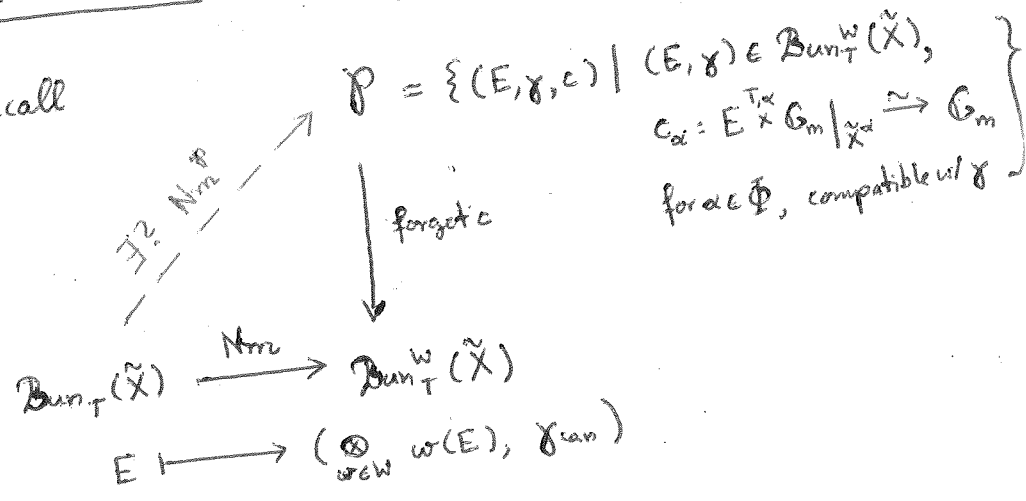 call
𝒫 = {(E, γ, c) | (E, γ) ∈ Bun_T^W(X̃),
c_α : E ×^{T,α} G_m|_{X̃^α} ⥲ G_m
for α ∈ Φ, compatible w/ γ }
∃? Nm^𝒫
forget c
Bun_T(X̃) Nm → Bun_T^W(X̃)
E ↦ (⊗_{w∈W} w(E), γ_can)